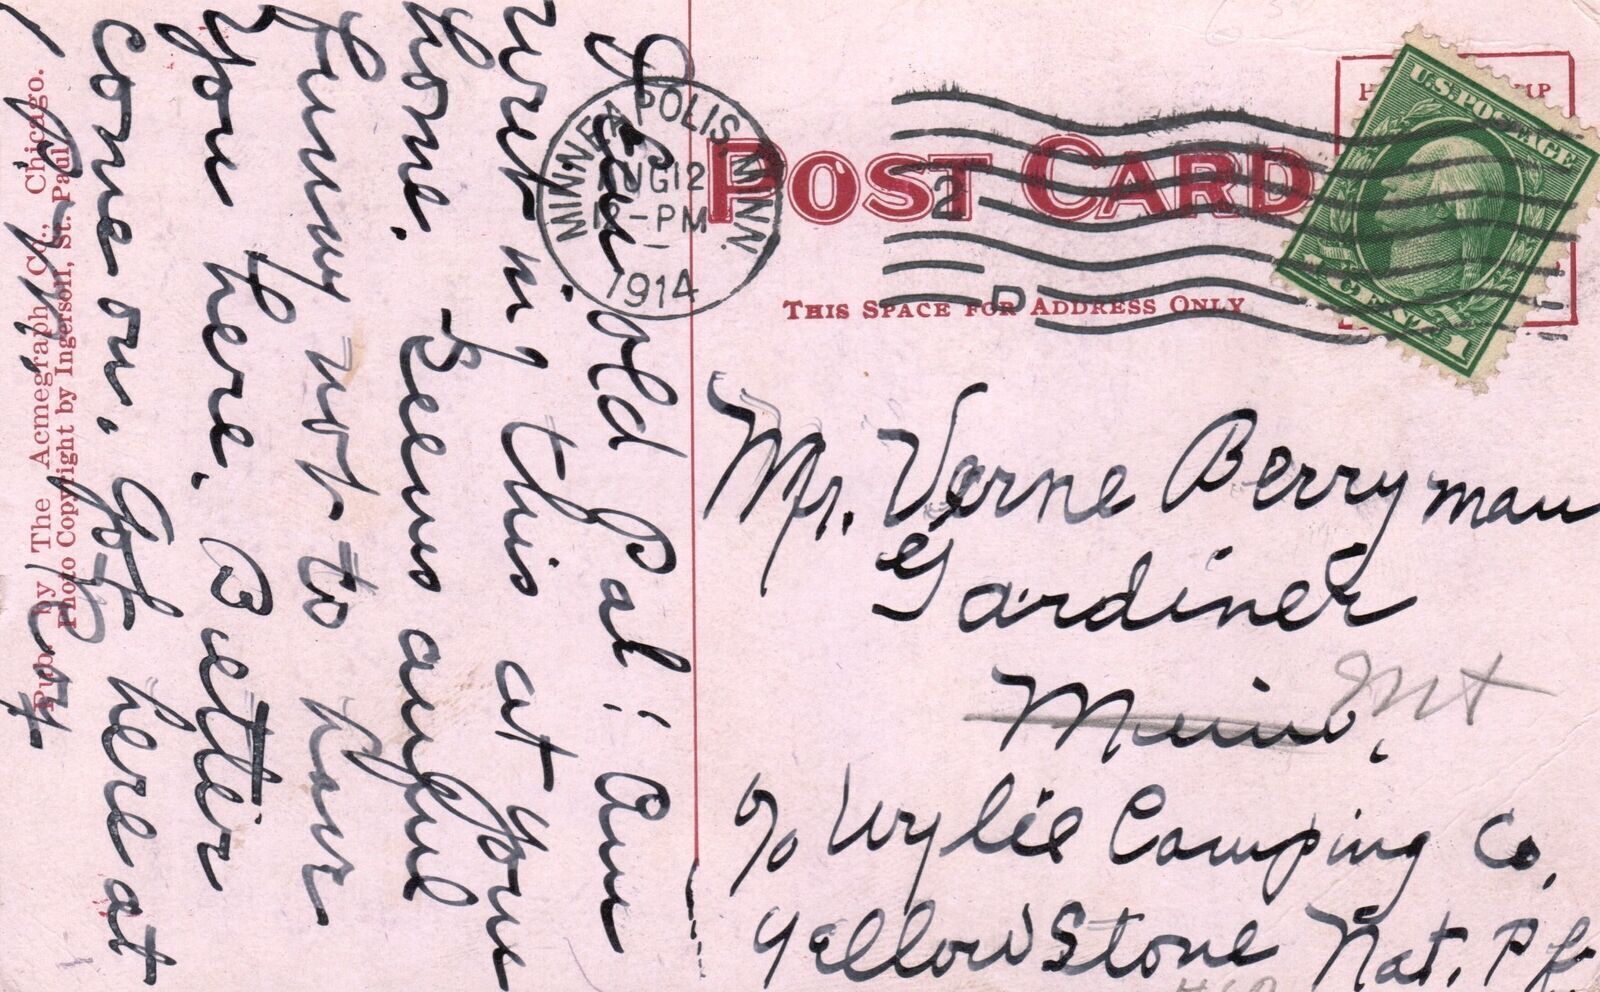 POST CARD
THIS SPACE FOR ADDRESS ONLY
U.S. POSTAGE
1 CENT 1
MINNEAPOLIS, MINN.
AUG 12
12-PM
1914
2
D
Mr. Verne Berryman
Gardiner
Minn.
Mt
c/o Wylie Camping Co.
Yellow Stone Nat. Pk.
old Pal: Am
writing this at your
home. Seems awful
funny not to have
you here. Better
come on. Got here at
Pub. by The Acmegraph Co., Chicago.
Photo Copyright by Ingerson, St. Paul